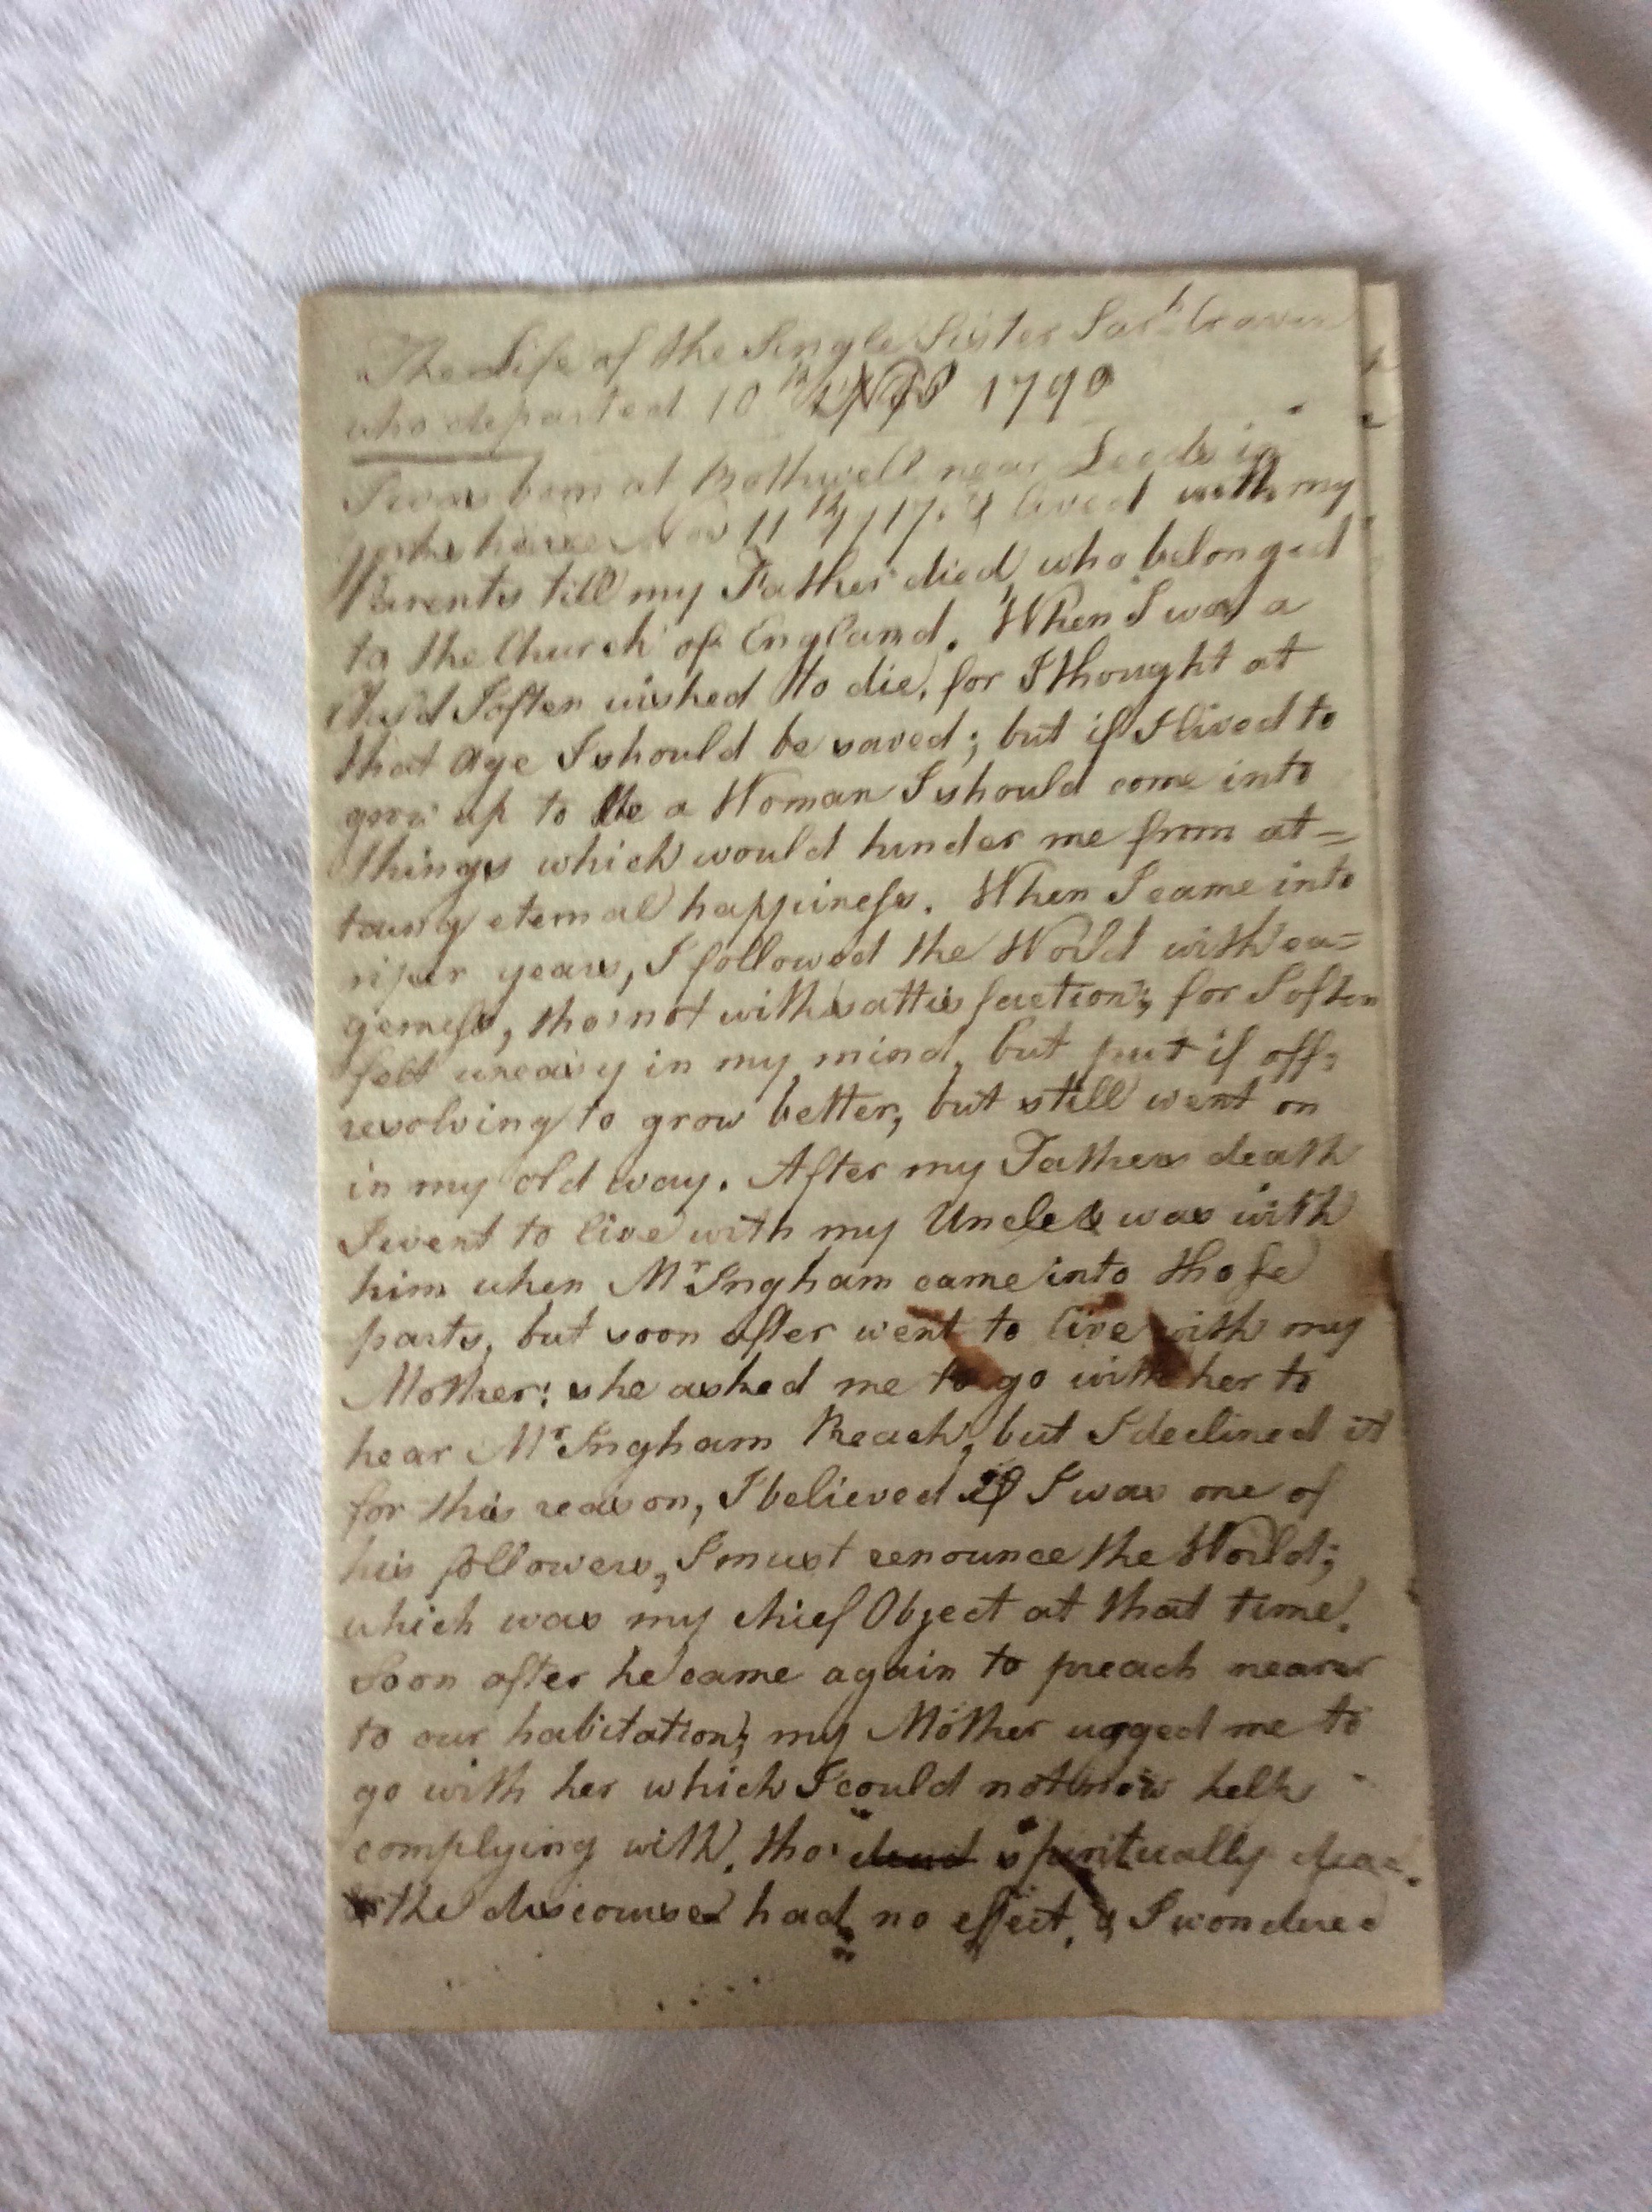 The Life of the Single Sister Sar.h Craven
who departed 10th 1790
I was born at Rothwell near Leeds in
Yorkshire Nov 11th 17 I lived with my
Parents till my Father died, who belonged
to the Church of England. When I was a
Child I often wished to die, for I thought at
that age I should be saved; but if I lived to
grow up to be a Woman I should come into
things which would hinder me from at=
taing eternal happiness. When I came into
riper years, I followed the World with ea=
gerness, tho' not with sattisfaction; for I often
felt uneasy in my mind, but put it off,
resolving to grow better, but still went on
in my old way. After my Fathers death
I went to live with my Uncle & was with
him when Mr Ingham came into those
parts, but soon after went to live with my
Mother: she asked me to go with her to
hear Mr Ingham Preach, but I declined it
for this reason, I believed if I was one of
his followers, I must renounce the World;
which was my chief Object at that time.
Soon after he came again to preach nearer
to our habitation; my Mother urged me to
go with her which I could not now help
complying with, tho' dead spiritually dead.
the discourse had no effect, & I wondered